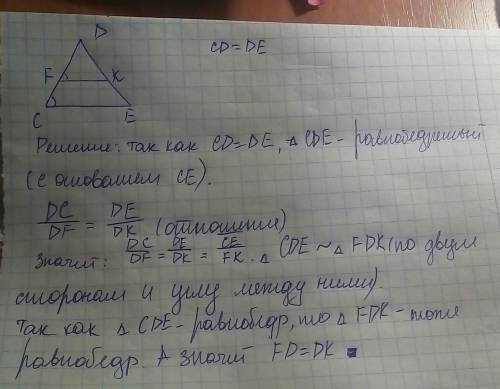 D
CD=DE
F K
C E
Решение: так как CD=DE, △ CDE - равнобедренный
(с основанием CE).
DC/DF = DE/DK (отношения)
Значит: DC/DF = DE/DK = CE/FK. △ CDE ~ △ FDK (по двум
сторонам и углу между ними).
Так как △ CDE - равнобедр, то △ FDK - тоже
равнобедр. А значит FD=DK